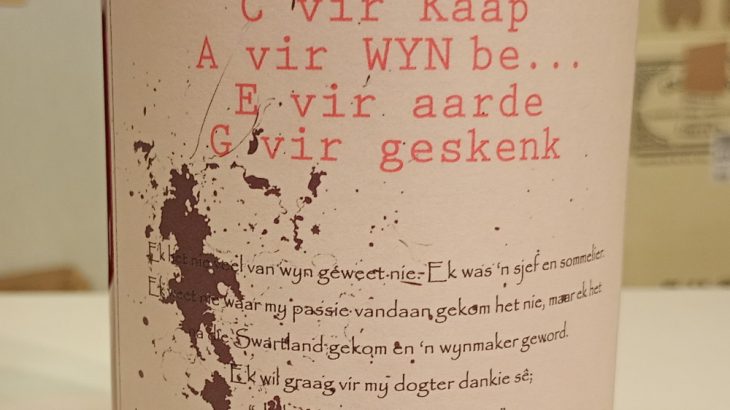 C vir Kaap
A vir WYN be...
E vir aarde
G vir geskenk
Ek het nie veel van wyn geweet nie. Ek was 'n sjef en sommelier.
Ek weet nie waar my passie vandaan gekom het nie, maar ek het
na die Swartland gekom en 'n wynmaker geword.
Ek wil graag vir my dogter dankie sê;